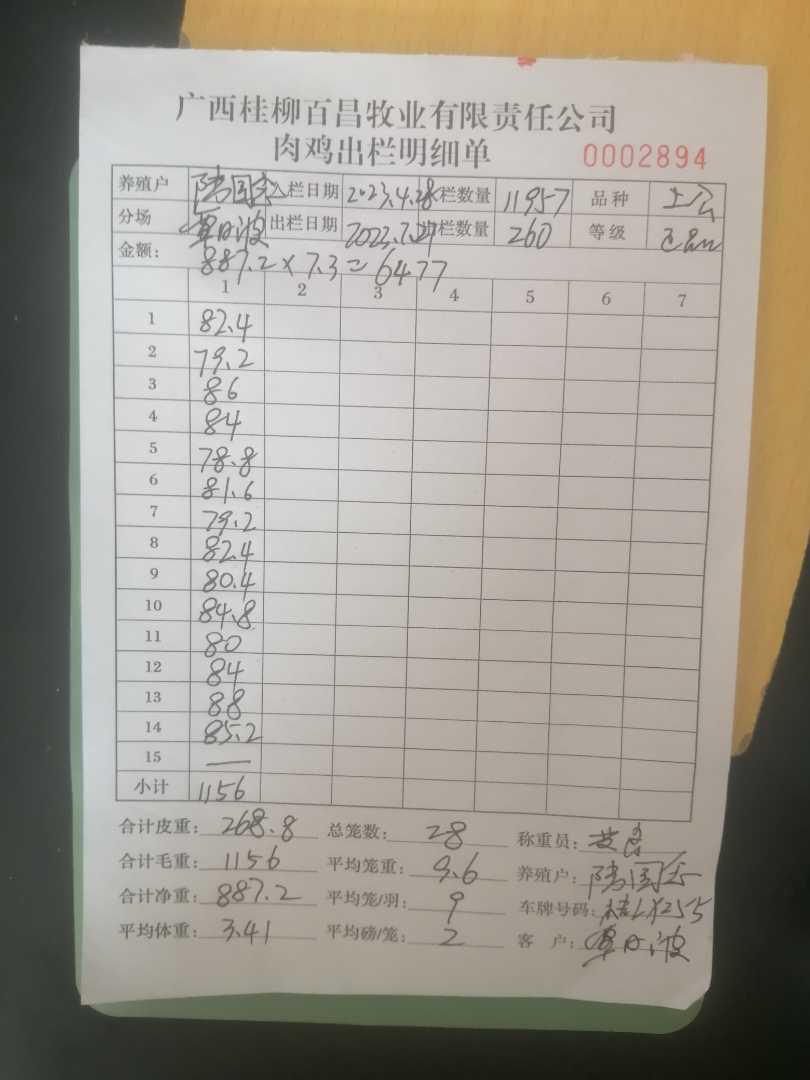 广西桂柳百昌牧业有限责任公司
肉鸡出栏明细单 0002894
养殖户 陆国 入栏日期 2023.4.28 栏数量 11957 品种 土
分场 覃 波 出栏日期 2023.7.27 栏数量 260 等级
金额: 887.2×7.3=6477
1 2 3 4 5 6 7
1 82.4
2 79.2
3 86
4 84
5 78.8
6 81.6
7 79.2
8 82.4
9 80.4
10 84.8
11 80
12 84
13 88
14 85.2
15 —
小计 1156
合计皮重: 268.8 总笼数: 28 称重员:
合计毛重: 1156 平均笼重: 9.6 养殖户: 陆国
合计净重: 887.2 平均笼/羽: 9 车牌号码: 桂 255
平均体重: 3.41 平均磅/笼: 2 客户: 覃 波